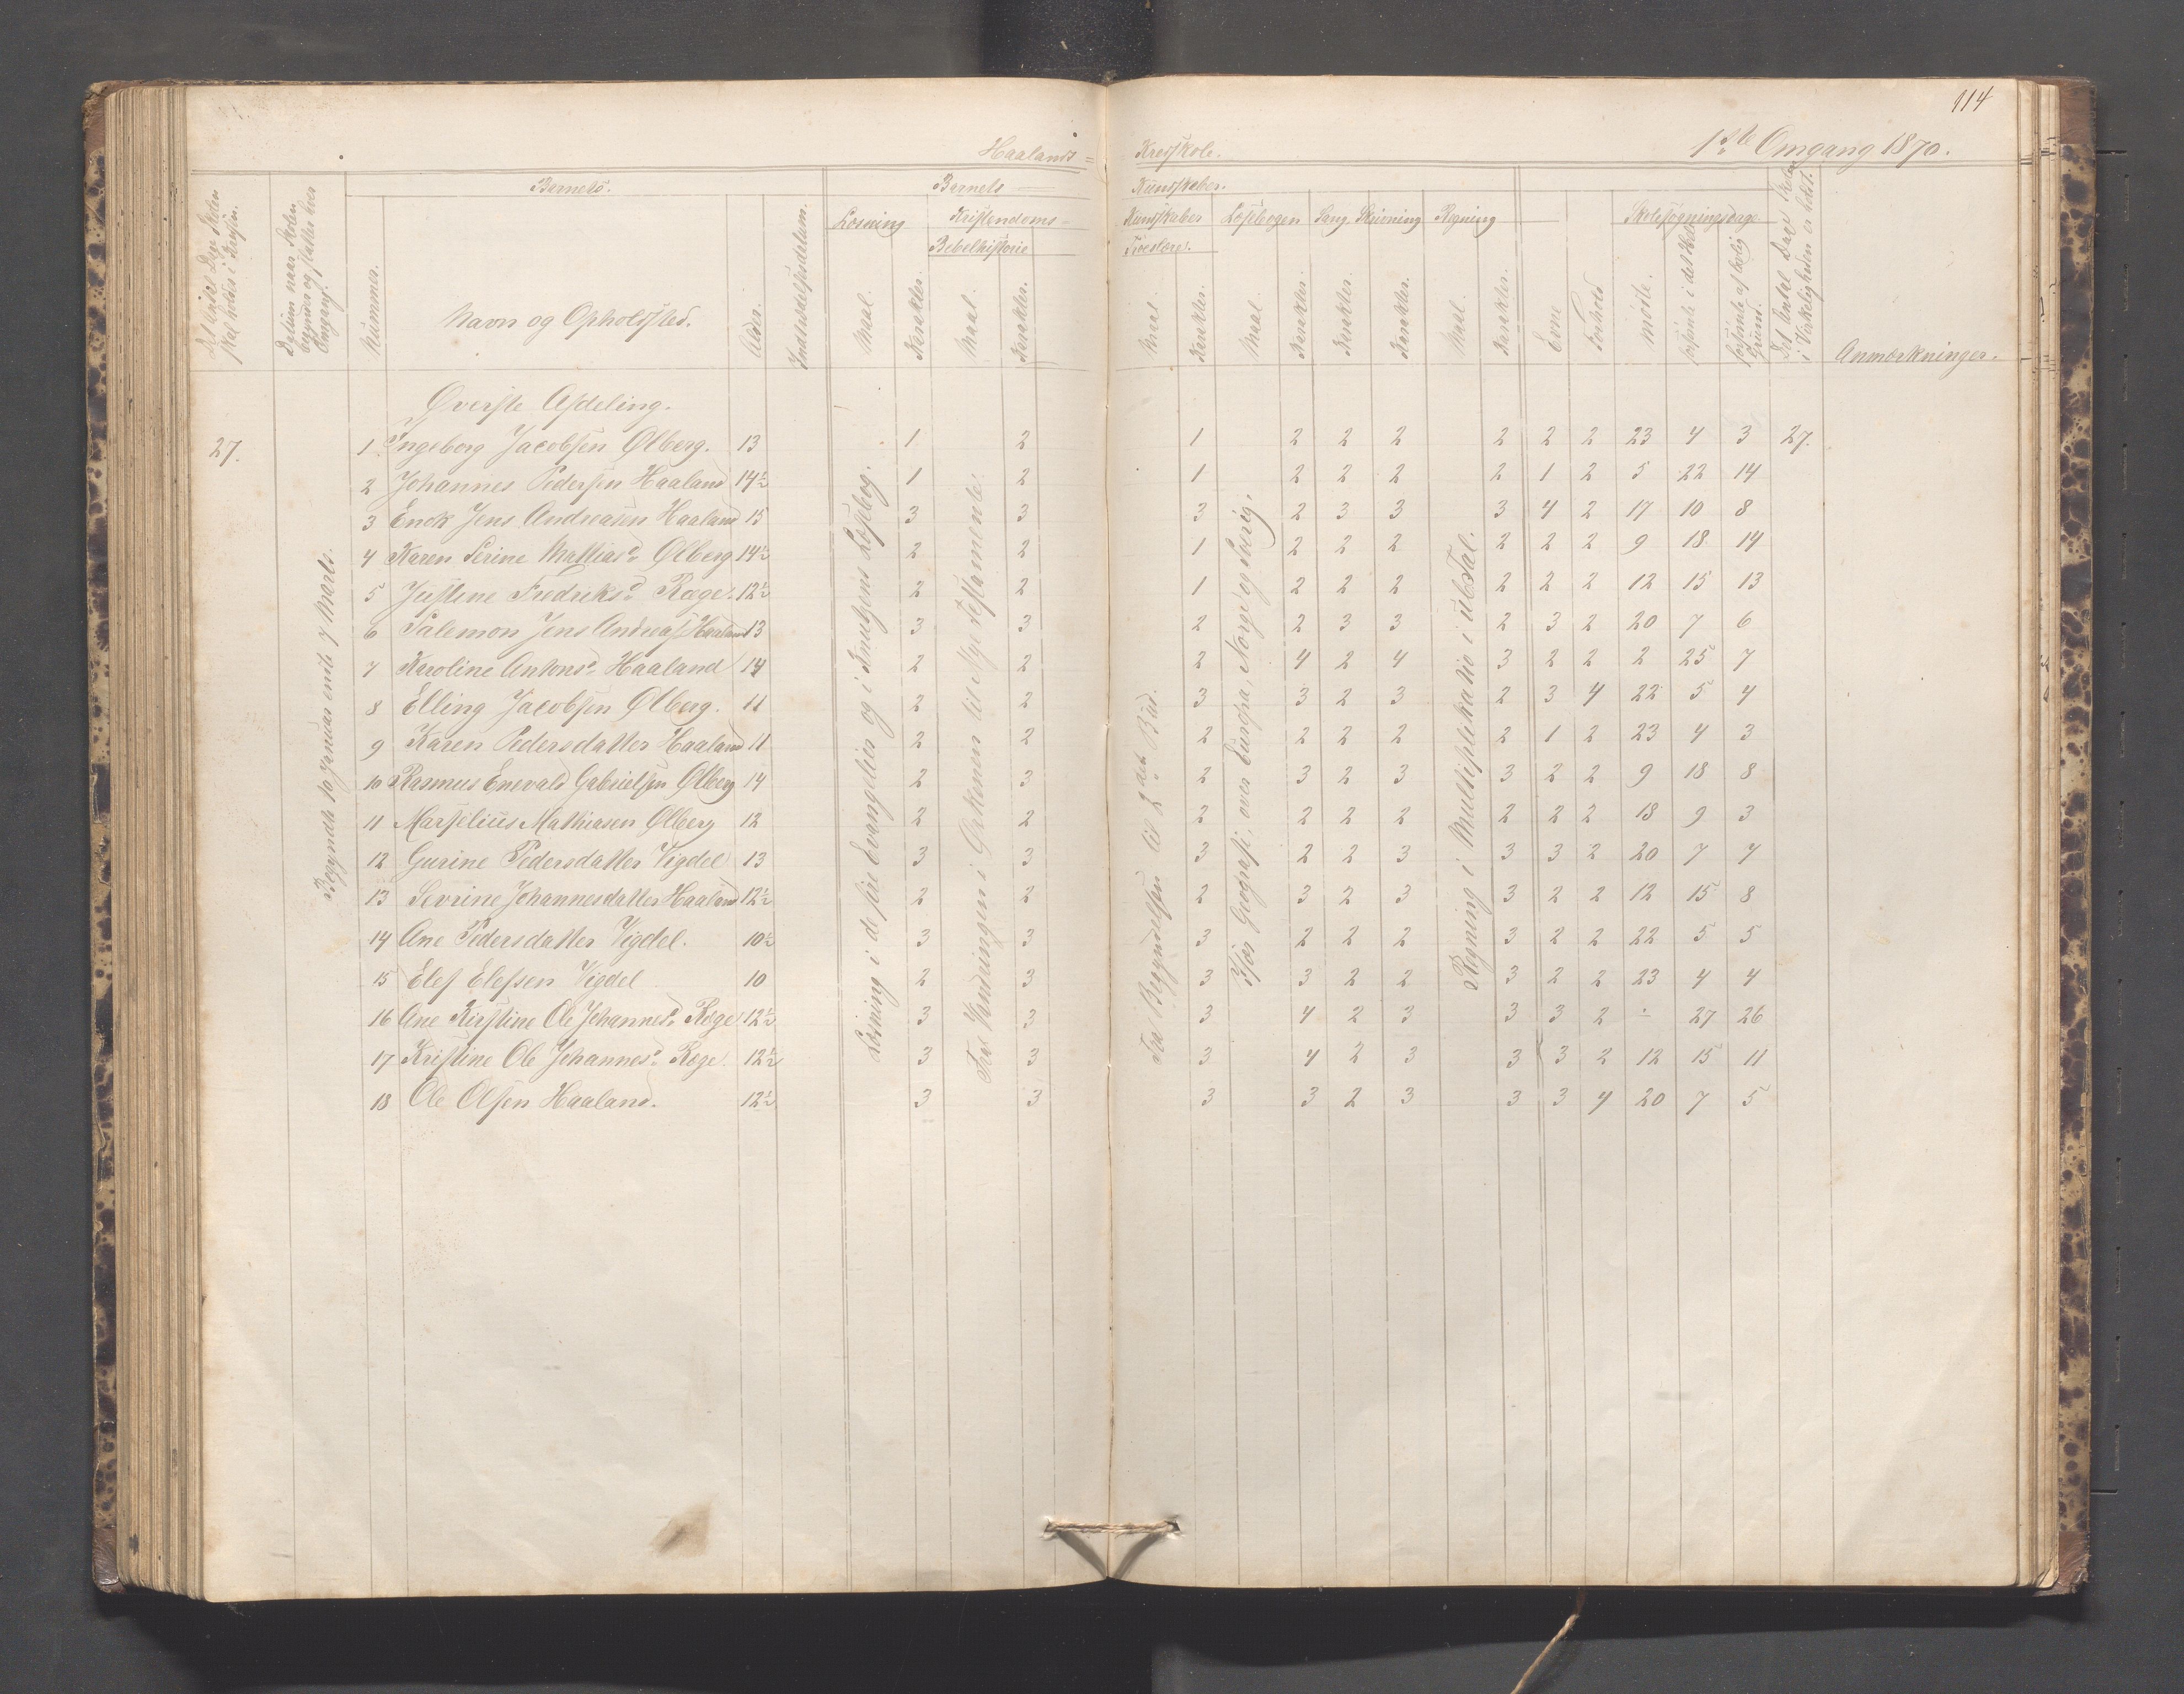 114
Haalands Kredsskole. 1ste Omgang 1870.
Det Antal Dage Skolen skal holdes i Kredsen.
Datum naar Skolen begynder og slutter hver Omgang.
Nummer.
Barnets.
Navn og Opholdssted.
Alder.
Indtrædelsesdatum.
Barnets Kundskaber.
Læsning
Maal.
Karakter.
Kristendoms- Kundskaber
Bibelhistorie
Maal.
Karakter.
Troeslære.
Maal.
Karakter.
Læsebogen
Maal.
Karakter.
Sang.
Karakter.
Skrivning
Karakter.
Regning
Maal.
Karakter.
Evne
Forhold
Skolesøgningsdage
mødte.
forsømte i det Hele
forsømte af lovlig Grund.
Det Antal Dage Skolen i Virkeligheden er holdt.
Anmærkninger.
Øverste Afdeling.
27. 1 Ingeborg Jacobsen Ølberg. 13 1 2 1 2 2 2 2 2 2 23 4 3 27.
2 Johannes Pedersen Haaland 14½ 1 2 1 2 2 2 2 1 2 5 22 14
3 Enok Jens Andreasen Haaland 15 3 3 3 2 3 3 3 4 2 17 10 8
4 Karen Serine Mathiasd. Ølberg 14½ 2 2 1 2 2 2 2 2 2 9 18 14
5 Justine Fredriksd. Ræge. 12½ 2 2 1 2 2 2 2 2 2 12 15 13
6 Salemon Jens Andreass. Haaland 13 3 3 2 2 3 3 2 3 2 20 7 6
7 Karoline Antonsd. Haaland 14 2 2 2 4 2 4 3 2 2 2 25 7
8 Elling Jacobsen Ølberg. 11 2 2 3 3 2 3 2 3 4 22 5 4
9 Karen Pedersdatter Haaland 11 2 2 2 2 2 2 2 1 2 23 4 3
10 Rasmus Enevald Gabrielsen Ølberg 14 2 3 2 3 2 3 3 2 2 9 18 8
11 Marselius Mathiasen Ølberg 12 2 2 2 2 2 2 2 2 2 18 9 3
12 Gurine Pedersdatter Vigdel 13 3 3 3 2 2 3 3 3 2 20 7 7
13 Sevrine Johannesdatter Haaland 12½ 2 2 2 3 2 3 3 2 2 12 15 8
14 Ane Pedersdatter Vigdel. 10½ 3 3 3 2 2 2 3 2 2 22 5 5
15 Elef Elefsen Vigdel 10 2 3 3 3 2 2 3 2 2 23 4 4
16 Ane Kirstine Ole Johannesd. Ræge 12½ 3 3 3 4 2 3 3 3 2 - 27 26
17 Kristine Ole Johannesd. Ræge. 12½ 3 3 3 4 2 3 3 3 2 12 15 11
18 Ole Olsen Haaland. 12½ 3 3 3 3 2 3 3 3 4 20 7 5
Begyndte 10 Januar endte 7 Marts.
Læsning i de fire Evangelier og i Knutsens Læsebog.
Fra Vandringen i Ørkenen til Nye Testamente.
Fra Begyndelsen til 2det Bud.
Geografi, over Europa, Norge og Sverig.
Regning i Multiplikatio i ubTal.